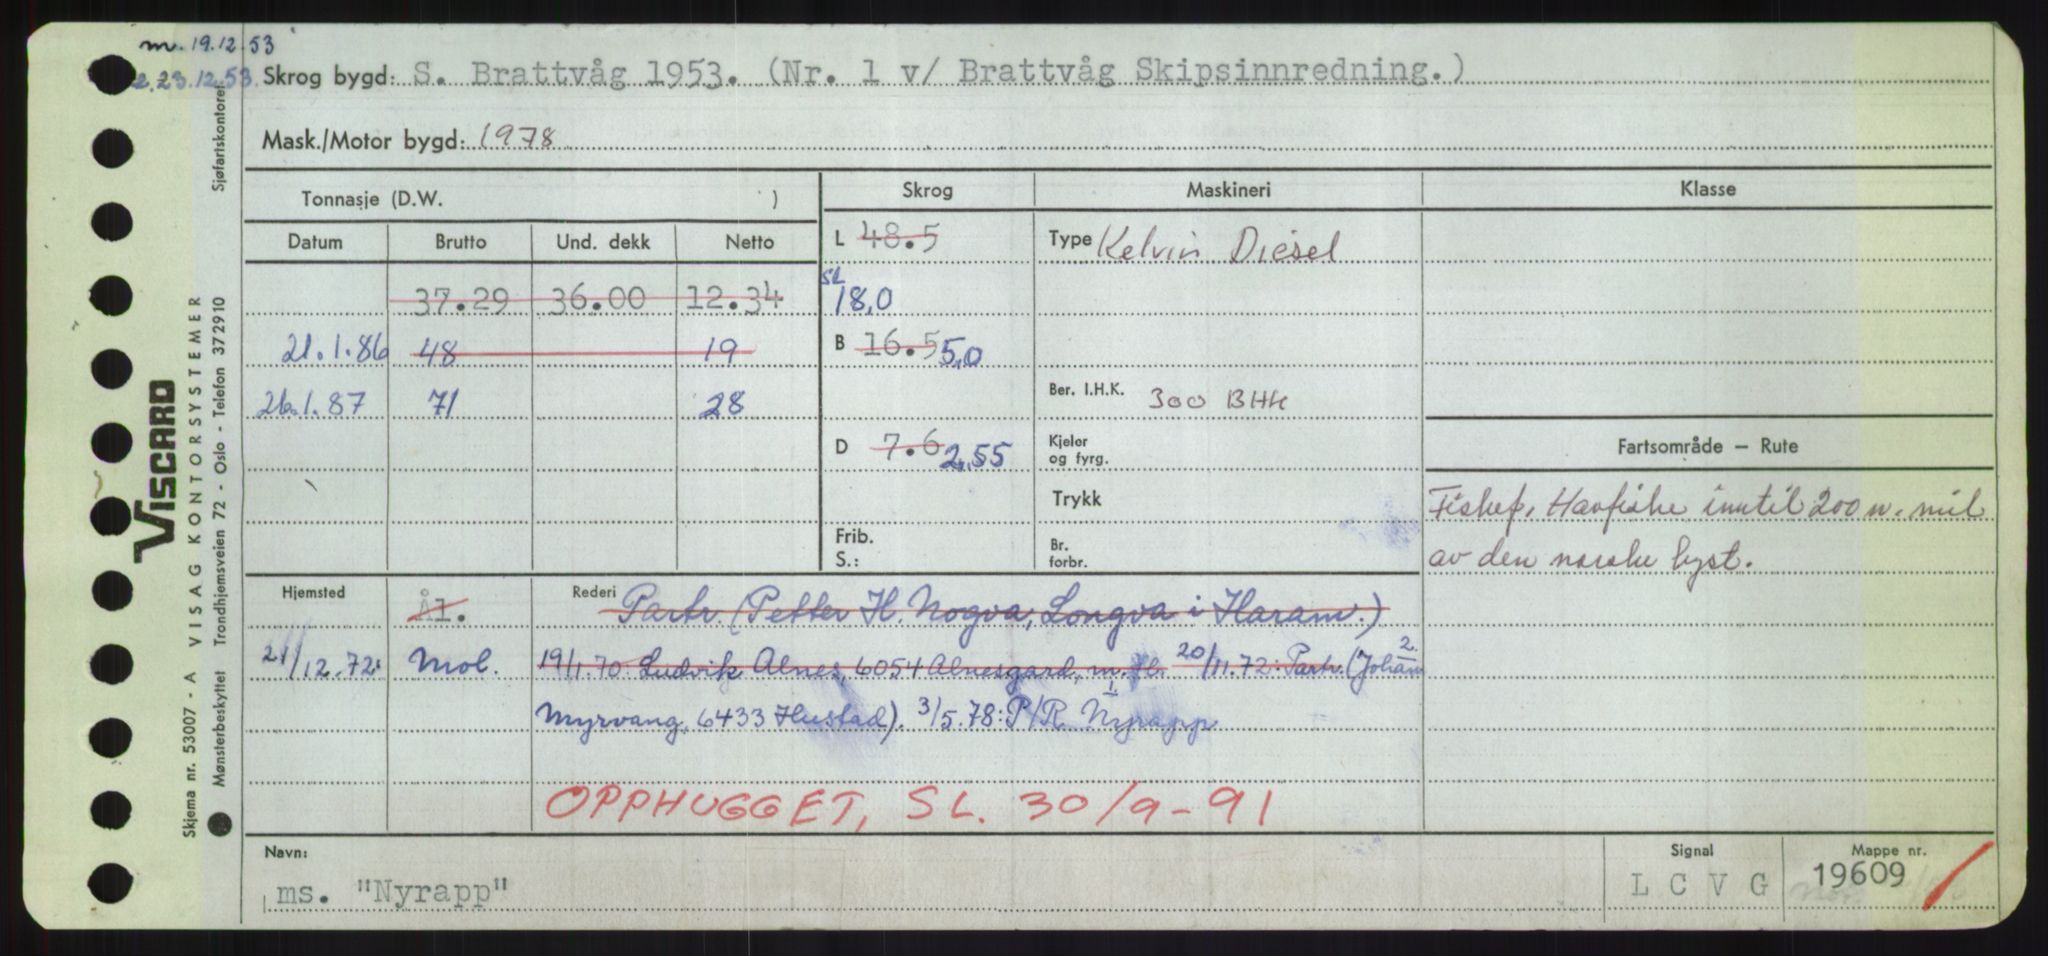 m. 19.12.53
23.12.53.
Skrog bygd: S. Brattvåg 1953. (Nr. 1 v/ Brattvåg Skipsinnredning.)
Mask./Motor bygd: 1978
Tonnasje (D.W. )
Skrog
Maskineri
Klasse
Datum
Brutto
Und. dekk
Netto
L 48.5
Type Kelvin Diesel
37.29 36.00 12.34
SL
18,0
21.1.86 48 19
B 16.5 5,0
26.1.87 71 28
Ber. I.H.K. 300 BHK
D 7.6 2,55
Kjeler
og fyrg.
Fartsområde — Rute
Trykk
Fiskef. Havfiske inntil 200 n. mil
av den norske kyst.
Frib.
S.:
Br.
forbr.
Hjemsted Ål.
Rederi Partr. (Petter H. Nogva, Longva i Haram.)
21/12.72: Mol.
19/1.70 Ludvik Alnes, 6054 Alnesgard, m. fl. 20/11.72: Partr. (Johan 2.
Myrvang, 6433 Hustad). 3/5.78: P/R Nyrapp 1.
OPPHUGGET, SL. 30/9-91
Navn:
ms. "Nyrapp"
Signal
L C V G
Mappe nr.
19609
Skjema nr. 53007 - A VISAG KONTORSYSTEMER
VISCARD
Mønsterbeskyttet Trondhjemsveien 72 - Oslo - Telefon 372910
Sjøfartskontoret